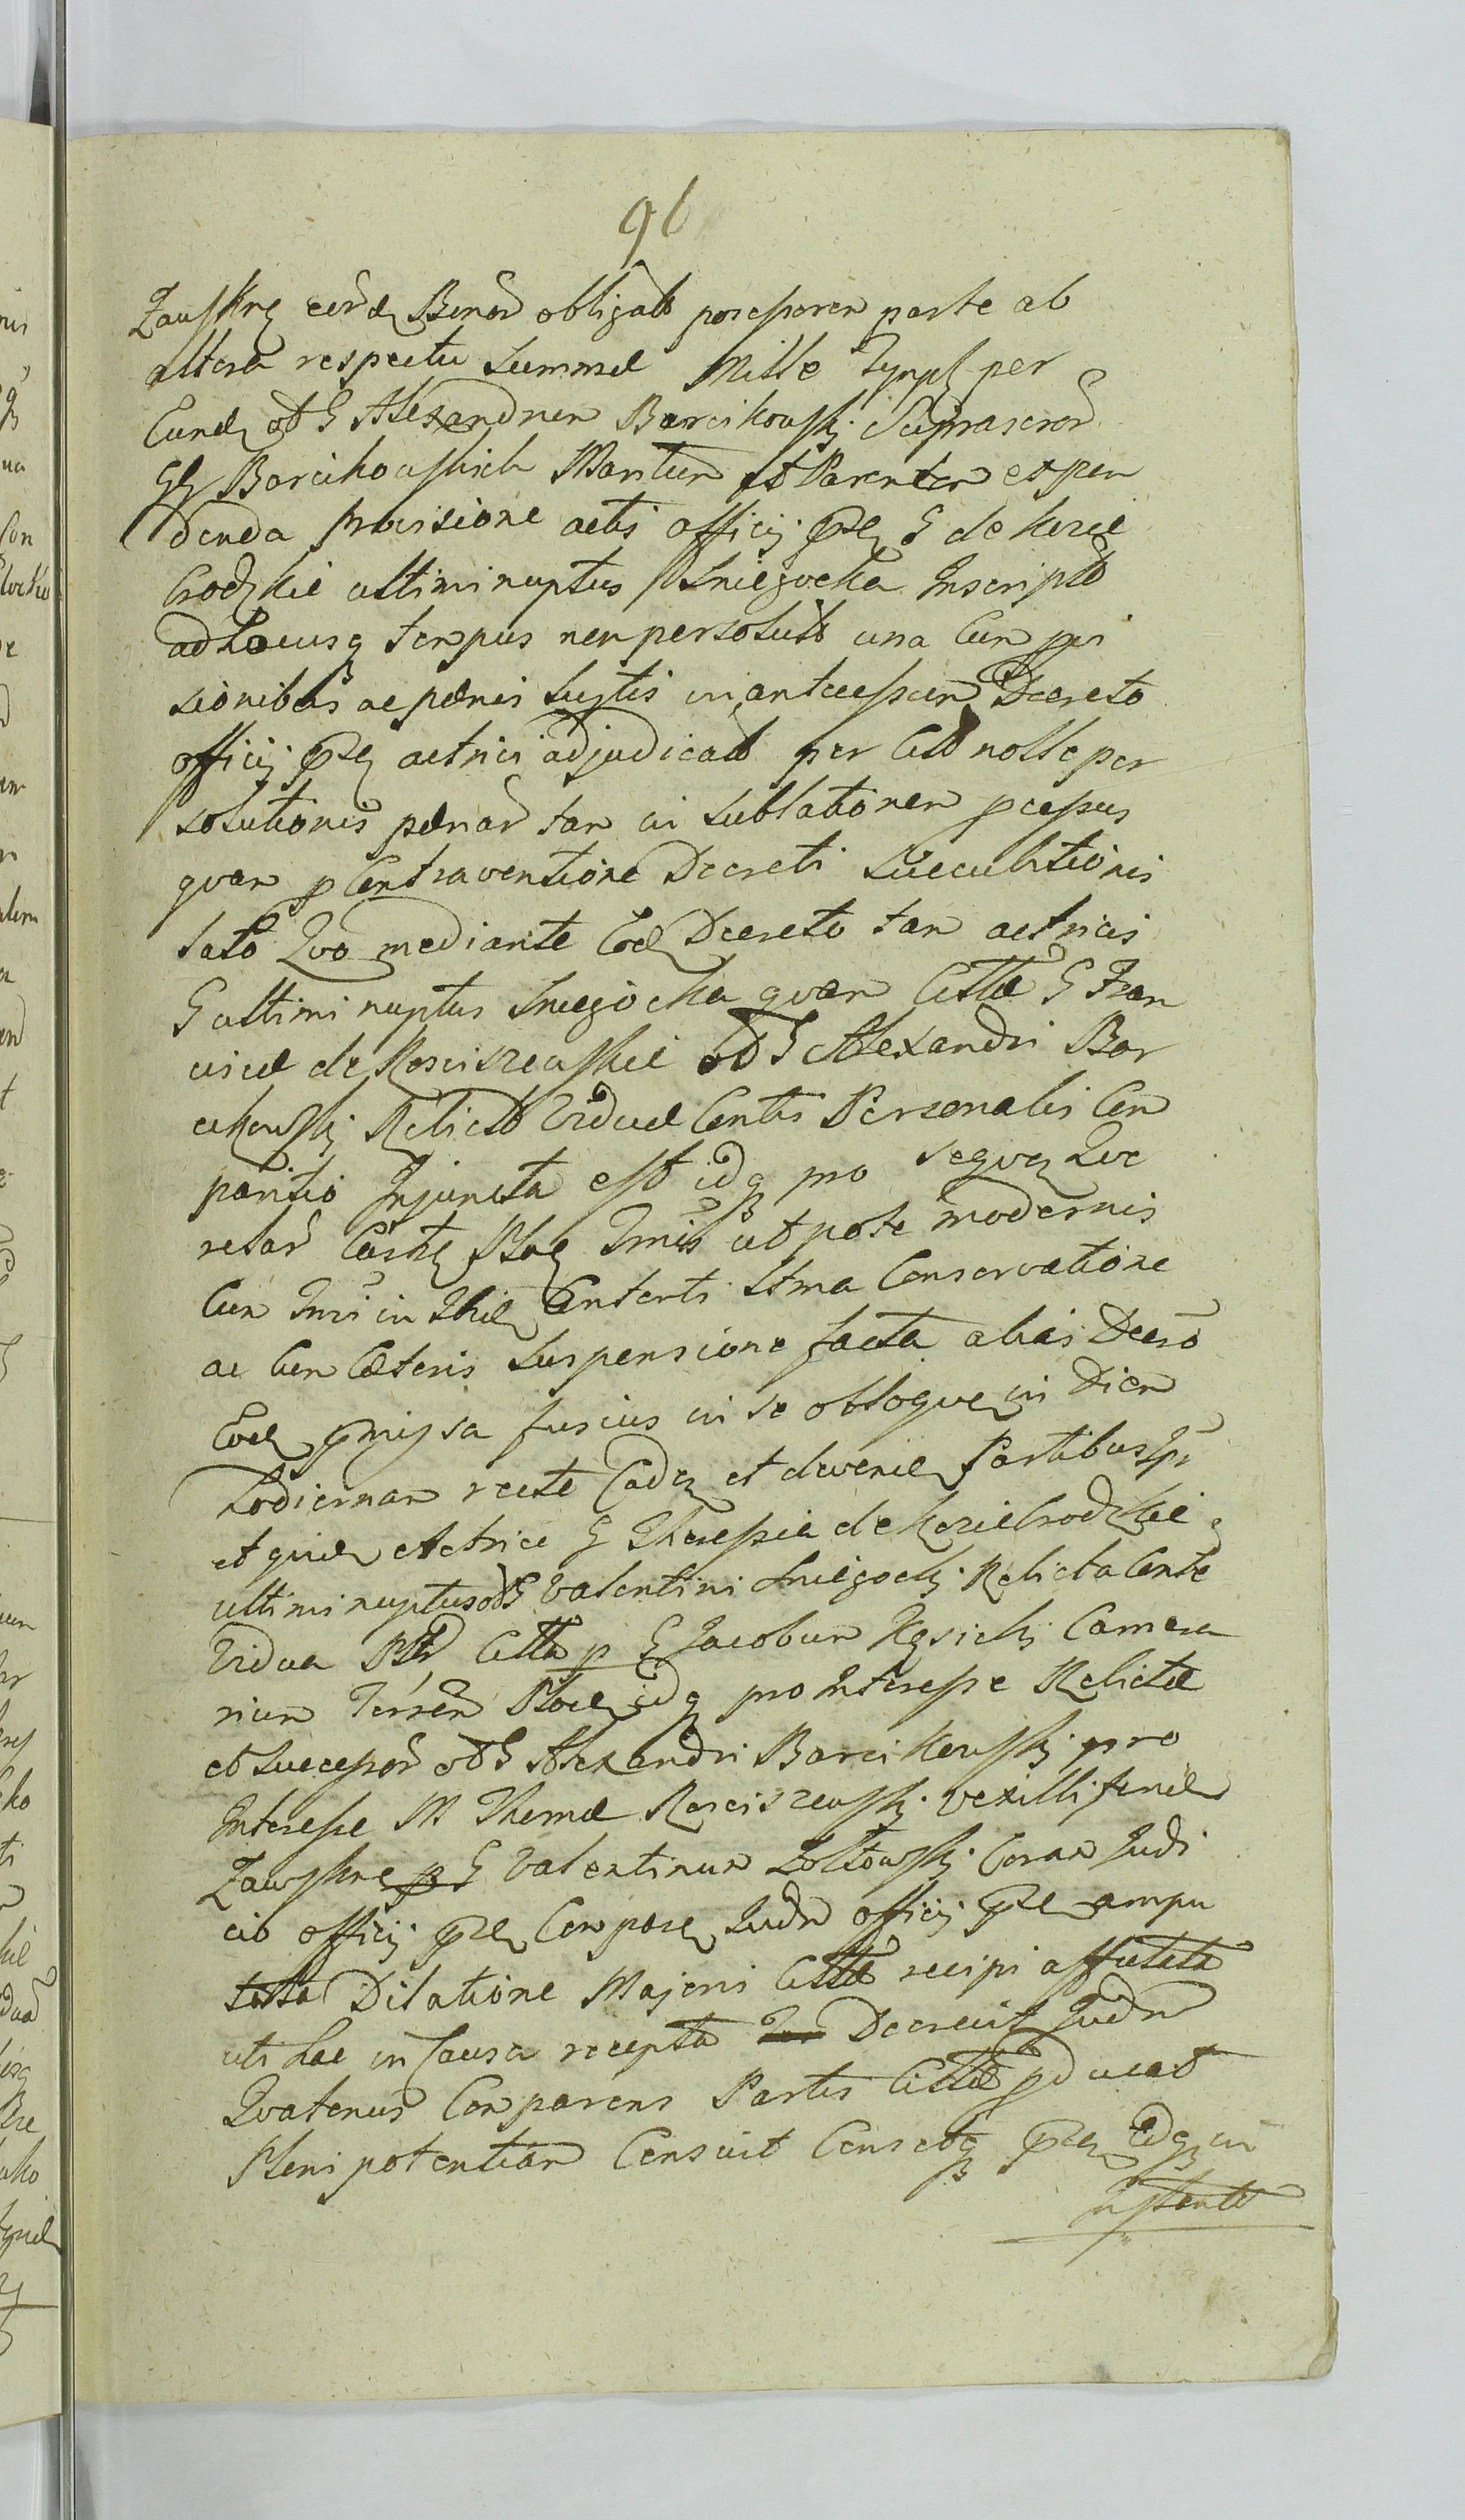 96
Zauskrę eord Bonor obligat possessorem parte ab
altera respectu Summæ Mille Tympf per
Eund ol G Alexandrum Barcikowski Suprascror
GG Barcikowskich Maritum et Parentem expen
denda provisione actis officij G de Kozie
brodzkie ultimi nuptus Sniegocka Inscript
adhocusq tempus non persolut una Cum provi
sionibus ac pœnis Luytis in antecessum Decreto
officij actrici adjudicat per Citt nolle per
solutionis pœnar tam in Sublationem pcessus
quam p Contraventione Decreti Succubitionis
lato Quo mediante Eod Decreto tam actricis
G ultimi nuptus Sniegocka quam Cittæ G Fran
ciscæ de Rosciszewskie ol G Alexandri Bar
cikowski Relictæ Viduæ Contis Personalis Com
paritio Injuncta est idq pro Que
relar Castr Ploc Tmis ut pote modernis
Cum Tmi in Contenti Stma Conservatione
ac Cum Cæteris Suspensione facta alias Decro
Eod pmissa fusius in se obloquen in Diem
hodiernam recte Caden et devenien Partibus Ips
et quid Actrice G Theressia de Koziebrodzkie
ultimi nuptus ol G Valentini Sniegocki Relicta Conte
Vidua Citta p G Jacobum Kęsicki Camera
rium Terren Ploc idq pro Interesse Relictæ
et Successor ol G Alexandri Barcikowski pro
Interesse M Thomæ Rosciszewski Vexilliferid
Zawskrę G Valentinum Zoltowski Coram Judi
cio officij Conparen Judm officij ampu
tata Dilatione Majoris Cittæ recipi affectata
uti hac in Causa recepta Decrevit Judm
Quatenus Conparens Partis Cittæ pducat
Plenipotentiam Censuit Censetq in
Instanti